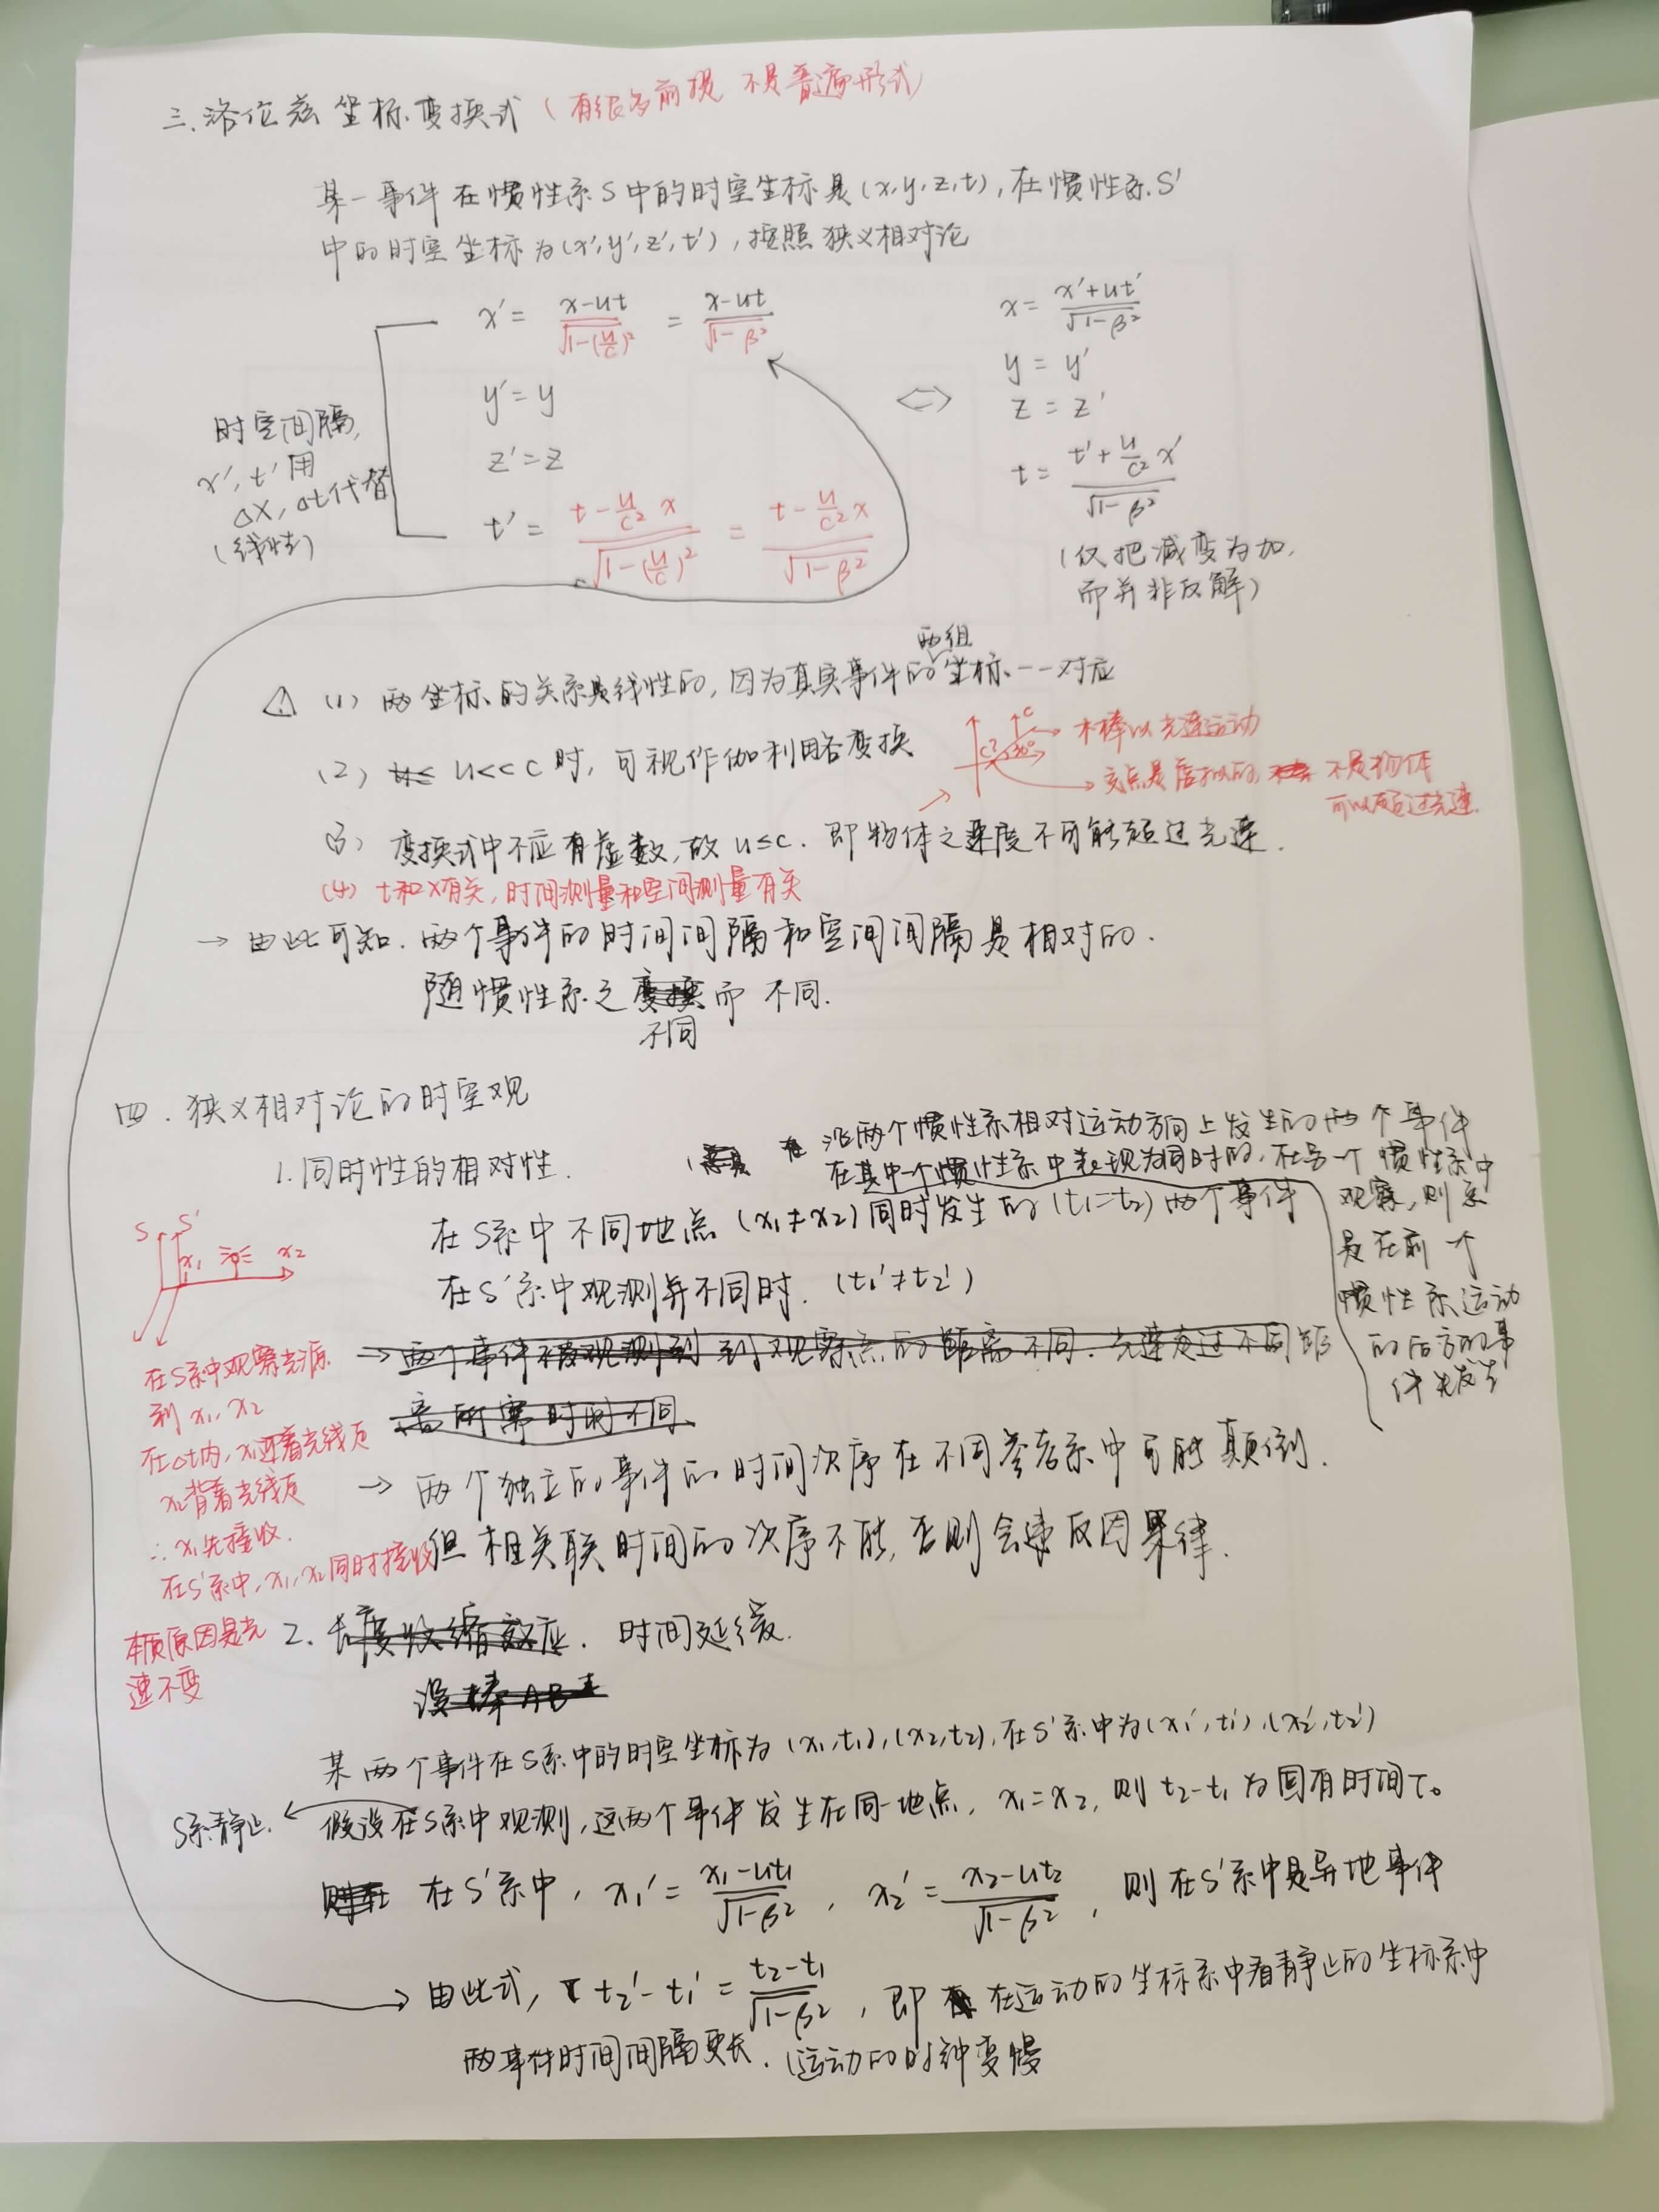 三.洛伦兹坐标变换式（有很多前提 不是普遍形式）
某一事件在惯性系S中的时空坐标是(x,y,z,t),在惯性系S'
中的时空坐标为(x',y',z',t'),按照狭义相对论
x' = x-ut / √1-(u/c)² = x-ut / √1-β²
y' = y
z' = z
t' = t-u/c² x / √1-(u/c)² = t-u/c² x / √1-β²
时空间隔,
x',t'用
Δx,Δt代替
(线性)
<=>
x = x'+ut' / √1-β²
y = y'
z = z'
t = t'+u/c² x' / √1-β²
(仅把减变为加,
而并非反解)
(1) 两坐标的关系是线性的,因为真实事件的两组坐标一一对应
(2) u<<c时,可视作伽利略变换
c
c? 30°
木棒以光速运动
交点是虚拟的, 不是物体
可以超过光速.
(3) 变换式中不应有虚数,故u≤c.即物体之速度不可能超过光速.
(4) t和x有关,时间测量和空间测量有关
→ 由此可知.两个事件的时间间隔和空间间隔是相对的.
随惯性系之不同而不同.
四.狭义相对论的时空观
1.同时性的相对性.
沿两个惯性系相对运动方向上发生的两个事件
在其中一个惯性系中表现为同时的,在另一个惯性系中
观察,则
是在前一个
惯性系运动
的后方的事
件先发生
在S系中不同地点(x₁≠x₂)同时发生的(t₁=t₂)两个事件
在S'系中观测并不同时.(t₁'≠t₂')
S S'
x₁ x₂
在S系中观察光源
到x₁,x₂
在Δt内,x₁迎着光线
x₂背着光线
∴x₁先接收.
在S'系中,x₁,x₂同时接收
本质原因是光
速不变
→ 两个事件 观测到 到观察点的距离不同.光速走过不同距
离所需时时不同.
→ 两个独立的事件的时间次序在不同参考系中可能颠倒.
但相关联时间的次序不能,否则会违反因果律.
2. 长度收缩效应. 时间延缓.
设棒AB
某两个事件在S系中的时空坐标为(x₁,t₁),(x₂,t₂),在S'系中为(x₁',t₁'),(x₂',t₂')
S系静止. ← 假设在S系中观测,这两个事件发生在同一地点,x₁=x₂,则t₂-t₁为固有时间τ₀
在S'系中, x₁' = x₁-ut₁ / √1-β² , x₂' = x₂-ut₂ / √1-β² ,则在S'系中是异地事件
→ 由此式, t₂'-t₁' = t₂-t₁ / √1-β² ,即在运动的坐标系中看静止的坐标系中
两事件时间间隔更长.(运动的时钟变慢